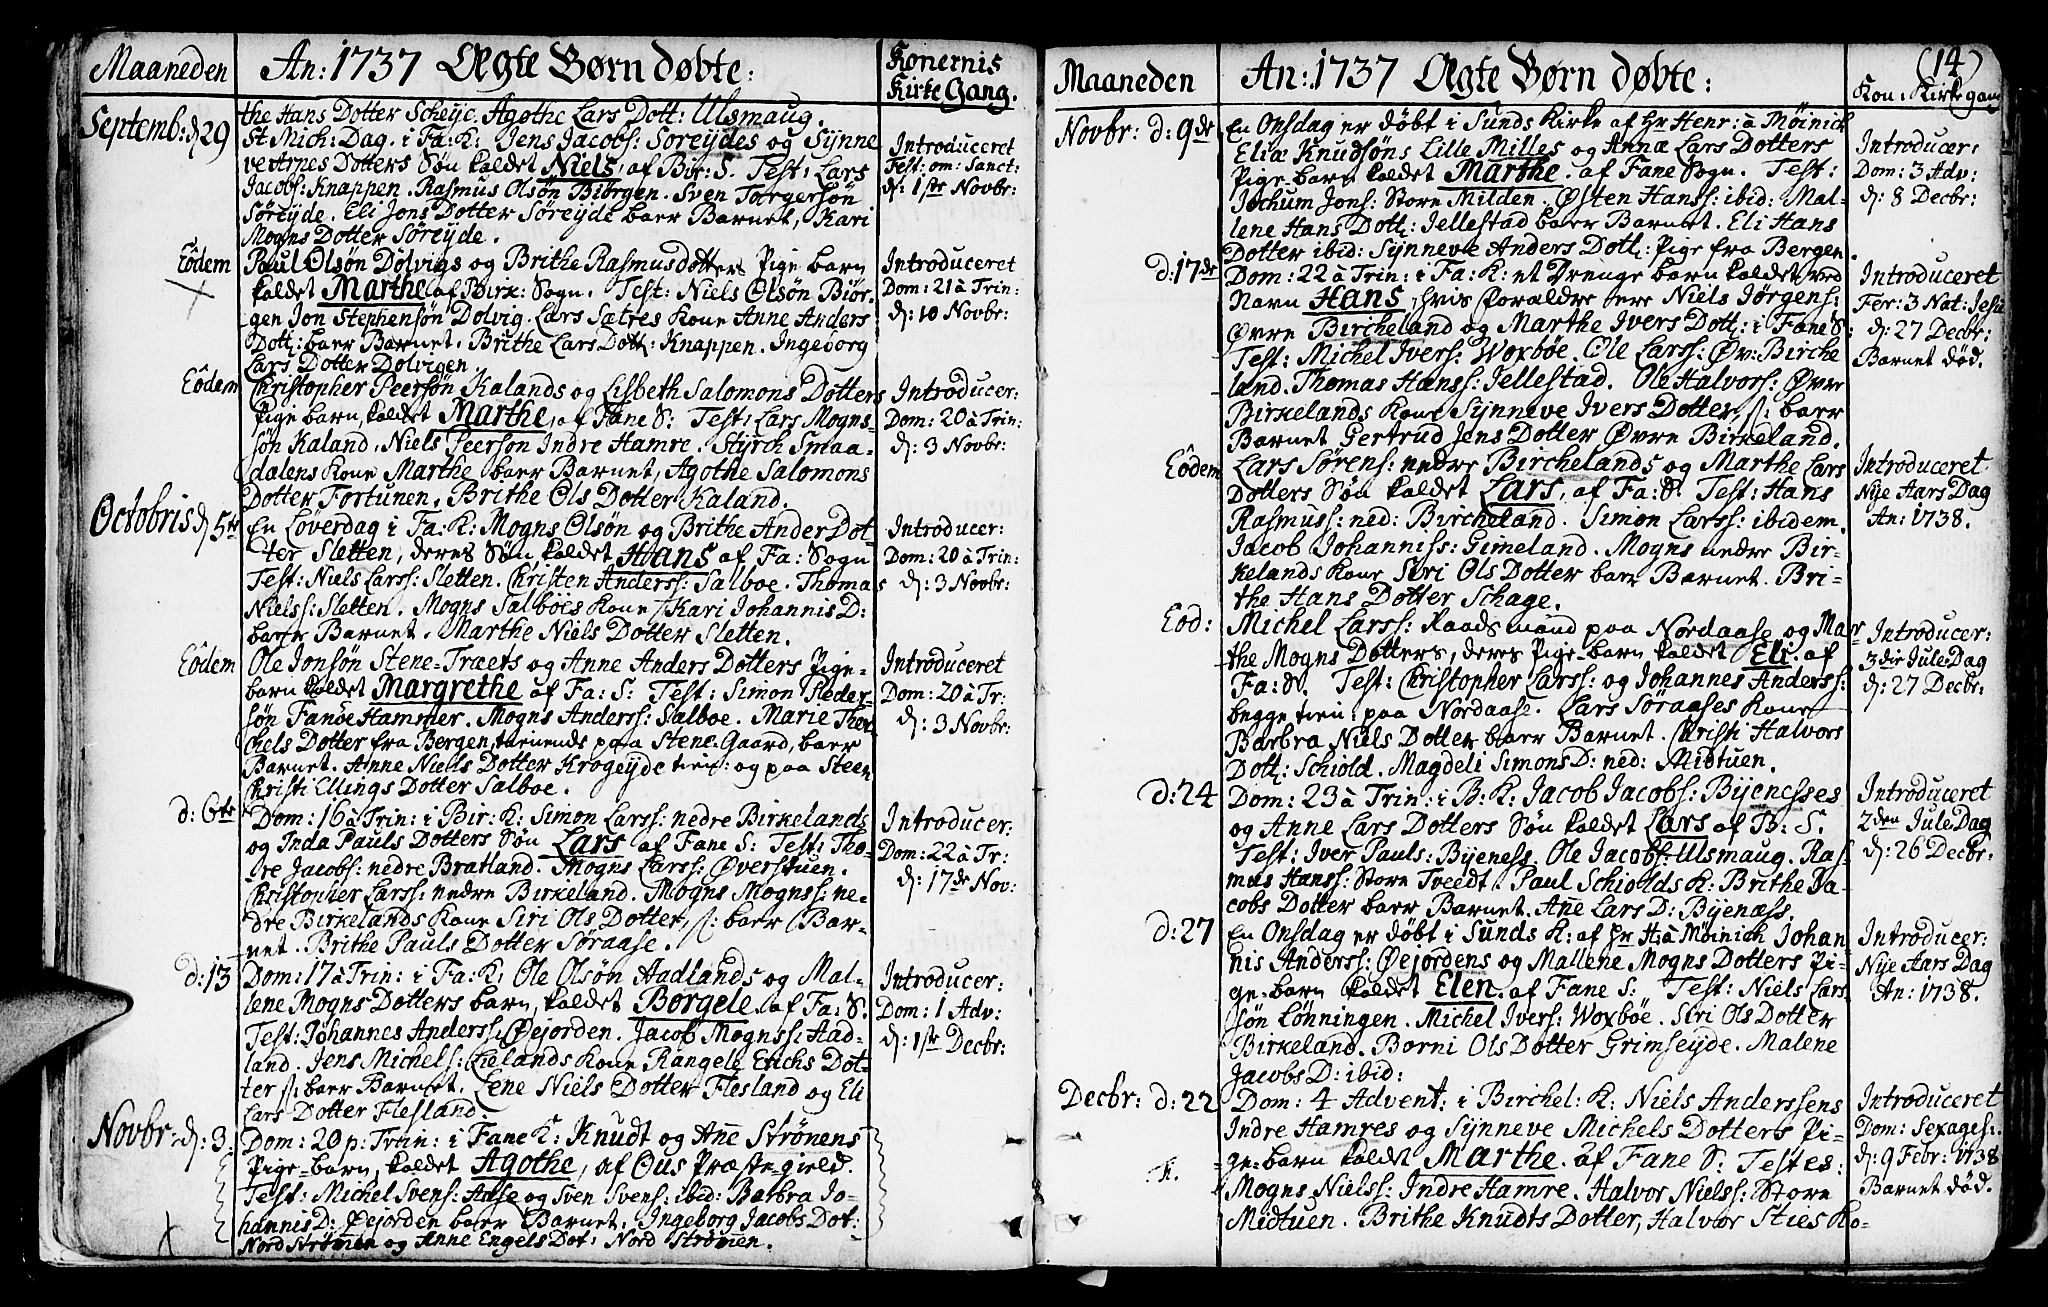 Maaneden
An: 1737 Ægte Børn døbte:
Konernis
Kirke Gang.
the Hans Dotter Scheye. Agothe Lars Dott: Ulsmaug.
Septemb: d 29
St Mich: Dag. i Fa: K: Jens Jacobs: Soreydes og Synne
ve Arnes Dotters Søn kaldet Niels, af Bir: S. Test: Lars
Jacobs: Knappen. Rasmus Olsøn Biörgen. Sven Torgersøn
Søreyde. Eli Jons Dotter Søreyde baer Barnet, Kari
Mogns Dotter Søreyde.
Introduceret
Fest: om: Sanct:
d: 1ste Novbr:
Eodem
Paul Olsøn Dolvigs og Brithe Rasmusdotters Pige barn
kaldet Marthe af Birk: Sogn. Test: Niels Olsøn Biør-
gen Jon Stephensøn Dolvig. Lars Sætres Kone Anne Anders
Dott: baer Barnet. Brithe Lars Dott: Knappen. Ingeborg
Lars Dotter Dolvigen.
Introduceret
Dom: 21 à Trin:
d: 10 Novbr:
Eodem
Christopher Peersøn Kalands og Lisbeth Salomons Dotters
Pige barn, kaldet Marthe, af Fane S: Test: Lars Mogns-
søn Kaland, Niels Peerson Indre Hamre. Styrck Smaa-
dalens Kone Marthe baer Barnet, Agothe Salomons
Dotter Fortunen. Brithe Ols Dotter Kaland.
Introducer:
Dom: 20 à Trin:
d: 3 Novbr:
Octobris d 5te
En Løverdag i Fa: K: Mogns Olsøn og Brithe Ander Dot-
ter Sletten, deres Søn kaldet Hans af Fa: Sogn
Test: Niels Larss: Sletten. Christen Anderss: Salboe. Thomas
Nielss: Sletten. Mogns Salboes Kone Kari Johannis D:
baer Barnet. Marthe Niels Dotter Sletten.
Introducer:
Dom: 20 à Trin:
d: 3 Novbr:
Eodem
Ole Jonsøn Stene-Træets og Anne Anders Dotters Pige-
barn kaldet Margrethe af Fa: S: Test: Simon Peder-
søn Fanøe Hammer. Mogns Anderss: Salboe. Marie Ther
chels Dotter fra Bergen, tienends paa Stene-Gaard, baer
Barnet. Anne Niels Dotter Krogeyde tien: og paa Steen
Christi Ellings Dotter Salboe.
Introduceret
Dom: 20 à Tr:
d: 3 Novbr:
d: 6te
Dom: 16 à Trin: i Bir: K: Simon Larss: nedre Birkelands
og Inda Pauls Dotters Søn Lars af Fane S: Test: Tho-
re Jacobs: nedre Bratland. Mogns Larss: Øverstuen.
Christopher Larss: nedre Birkeland. Mogns Mognss: ne-
dre Birkelands Kone Siri Ols Dotter, /: baer Bar-
net. Brithe Pauls Dotter Søraase.
Introducer:
Dom: 22 à Tr:
d: 17de Nov:
d: 13
Dom: 17 à Trin: i Fa: K: Ole Olsøn Aadlands og Mal-
lene Mogns Dotters barn, kaldet Borgele af Fa: S:
Test: Johannes Anderss: Øejorden. Jacob Mognss: Aad-
land. Jens Michels: Lielands Kone Rangele Erichs Dot-
ter /: baer Barnet. Lene Niels Dotter Flesland og Eli
Lars Dotter Flesland.
Introducer:
Dom: 1 Adv:
d: 1ste Decbr:
Novbr: d: 3.
Dom: 20 p: Trin: i Fane K: Knudt og Añe Strønens
Pige-barn, kaldet Agothe, af Ous Præste-gield.
Test: Michel Svens: Aase og Sven Svens: ibid: Barbra Jo-
hannis D: Øejorden baer Barnet. Ingeborg Jacobs Dot:
Nord Strømen og Anne Engels Dot: Nord Strømen.
(14)
Maaneden
An: 1737 Ægte Børn døbte:
Kon: Kirkegang
Novbr: d: 9de
En Onsdag er døbt i Sunds Kirke af Hr Henr: à Møinich
Eliæ Knudsøns Lille Milles og Annæ Lars Dotters
Pige-barn kaldet Marthe. af Fane Sogn. Test:
Jochum Jons: Store Milden. Østen Hanss: ibid: Mal-
lene Hans Dott: Jellestad baer Barnet. Eli Hans
Dotter ibid: Synneve Anders Dott: Pige fra Bergen.
Introducer:
Dom: 3 Adv:
d: 8 Decbr:
d: 17de
Dom: 22 à Trin: i Fa: K: et Drenge barn kaldet ved
Navn Hans, hvis Forældre ere Niels Jørgens:
Øvre Bircheland og Marthe Ivers Dott: i Fane S:
Test: Michel Ivers: Woxbøe. Ole Larss: Øv: Birche
land. Thomas Hanss: Jellestad. Ole Halvors: Øvre
Birkelands Kone Synneve Ivers Dotter, /: baer
Barnet Gertrud Jens Dotter Øvre Birkeland.
Introduceret
Fer: 3 Nat: Jesu
d: 27 Decbr:
Barnet død.
Eodem
Lars Sørens: nedre Birchelands og Marthe Lars
Dotters Søn kaldet Lars, af Fa: S. Test: Hans
Rasmuss: ned: Bircheland. Simon Larss: ibidem.
Jacob Johanniss: Gimeland. Mogns nedre Bir-
kelands Kone Siri Ols Dotter baer Barnet. Bri-
the Hans Dotter Schage.
Introduceret
Nye Aars Dag
An: 1738.
Eod:
Michel Larss: Raads mand paa Nordaase og Mar-
the Mogns Dotters, deres Pige-barn kaldet Eli. af
Fa: S. Test: Christopher Larss: og Johannes Anderss:
begge tien: paa Nordaase. Lars Søraases Kone
Barbra Niels Dotter baer Barnet. Christi Halvors
Dott: Schiold. Magdeli Simons D: ned: Midtuen.
Introducer:
3die Jule Dag
d: 27 Decbr:
d: 24
Dom: 23 à Trin: i B: K: Jacob Jacobs: Byenesses
og Anne Lars Dotters Søn kaldet Lars af B: S.
Test: Iver Pauls: Byeness. Ole Jacobs: Ulsmaug. Ras-
mus Hanss: Store Tveedt. Paul Schiolds K: Brithe Ja-
cobs Dotter baer Barnet. Añe Lars D: Byenæss.
Introduceret
2den Jule Dag
d: 26 Decbr:
d: 27
En Onsdag er døbt i Sunds K: af Hr H: à Møinich Johan
nis Anderss: Øejordens og Mallene Mogns Dotters Pi-
ge-barn kaldet Elen. af Fane S: Test: Niels Lars-
søn Lønningen. Michel Ivers: Woxbøe. Siri Ols Dotter
Birkeland. Borni Ols Dotter Grimseyde. Malene
Jacobs D: ibid:
Introducer:
Nye Aars Dag
An: 1738.
Decbr: d: 22
Dom: 4 Advent: i Birchel: K: Niels Anderssens
Indre Hamres og Synneve Michels Dotters Pi-
ge-barn kaldet Marthe. af Fane S: Testes:
Mogns Nielss: Indre Hamre. Halvor Nielss: Store
Midtuen. Brithe Knudts Dotter, Halvor Sties Ko-
Introduceret
Dom: Sexages:
d: 9 Febr: 1738
Barnet død.